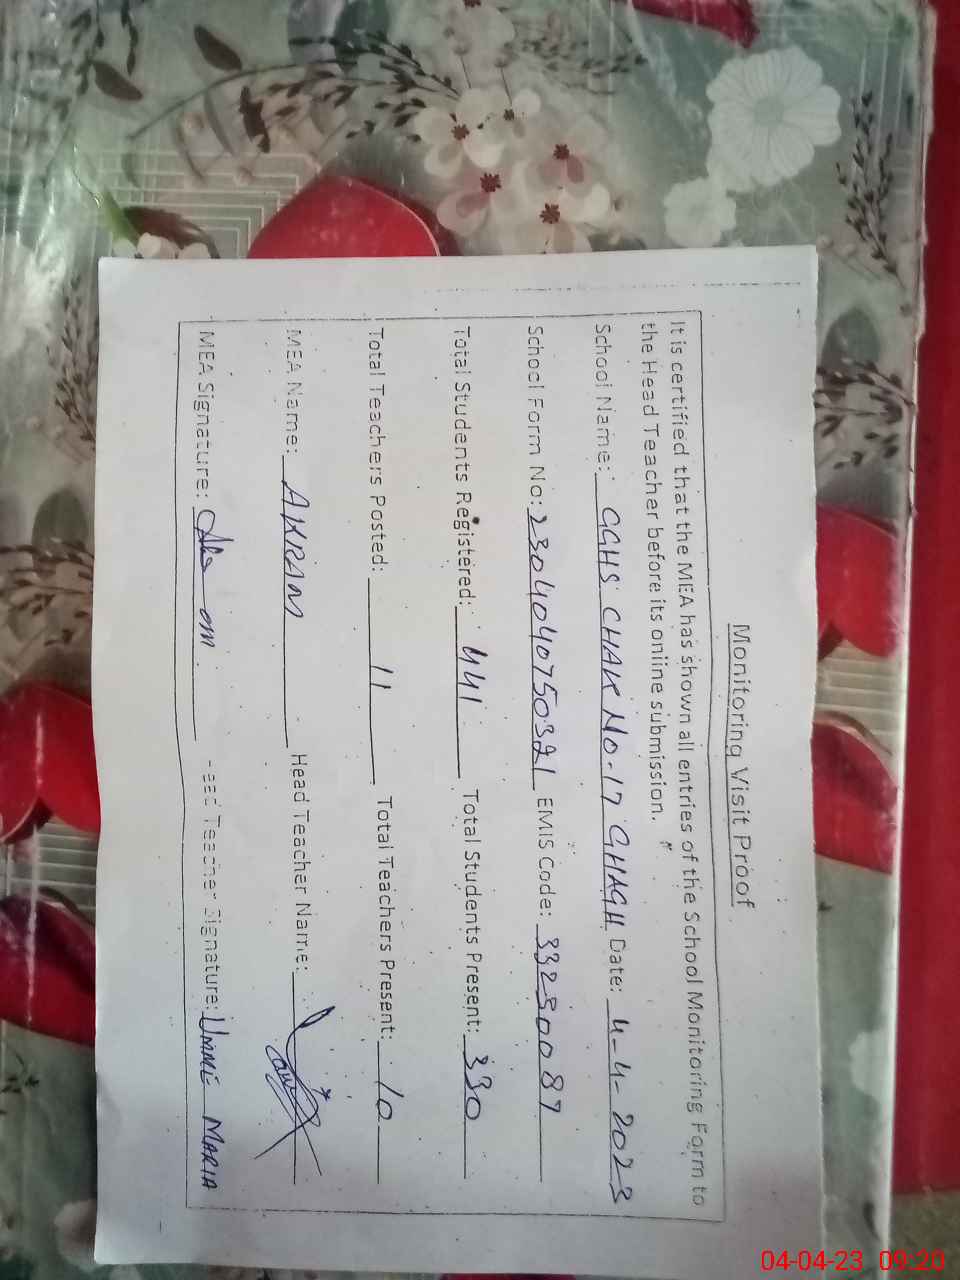 Monitoring Visit Proof
It is certified that the MEA has shown all entries of the School Monitoring Form to
the Head Teacher before its online submission.
School Name: GGHS CHAK NO-17 GHAGH Date: 4-4-2023
School Form No: 2304040750321 EMIS Code: 33250087
Total Students Registered: 441 Total Students Present: 330
Total Teachers Posted: 11 Total Teachers Present: 10
MEA Name: AKRAM Head Teacher Name:
MEA Signature: Head Teacher Signature: UMME MARIA
04-04-23 09:20